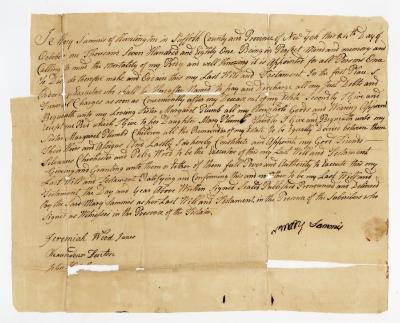 I Mary Sammis of Huntington in Suffolk County and Province of New York this 24th day of
October one Thousand Seven Hundred and Eighty one Being in Perfect Mind and memory and
Calling to mind the Mortality of my Body and well Knowing it is appointed for all Persons Once
to Die do therefore make and Execute this my Last Will and Testament In the first Place I
Order my Executors who Shall Hereafter Named to pay and Discharge all my Just Debts and
Funeral Charges as soon as Conveniently after my Decease out of my Estate Secondly I Give and
Bequeath unto my Loving Sister Margaret Plumb all my
except my Red which I Give to her Daughter Mary Plumb Thirdly I Give and Bequeath unto my
Sister Margaret Plumb Children all the Remainder of my Estate to be Equally Divided between them
their Heirs and Assigns and Lastly I do hereby Constitute and Appoint my Good Friends
Silvanus Chichester and Platt to be the Executors of this my Last Will and Testament
Giving and Granting unto them or Either of them full Power and Authority to Execute this my
Last Will and Testament Ratifying and Confirming this and no other to be my Last Will and
Testament the Day and Year Above Written Signed Sealed Published Pronounced and Delivered
By the Said Mary Sammis as her Last Will and Testament in the Presence of the Subscribers who
Signed as Witnesses in the Presence of the Testator
Mary Sammis
Jeremiah Wood Juner
John